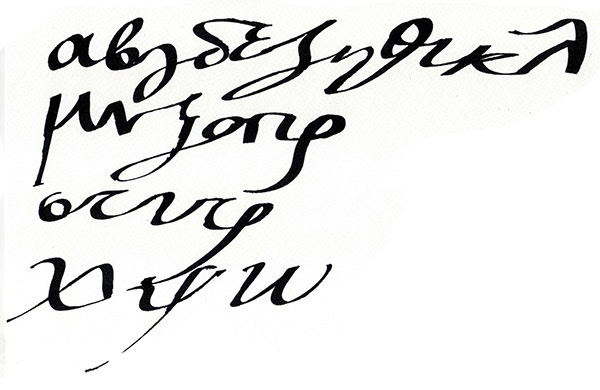 αβγδεζηθικλ
μνξοπρ
στυφ
χψω